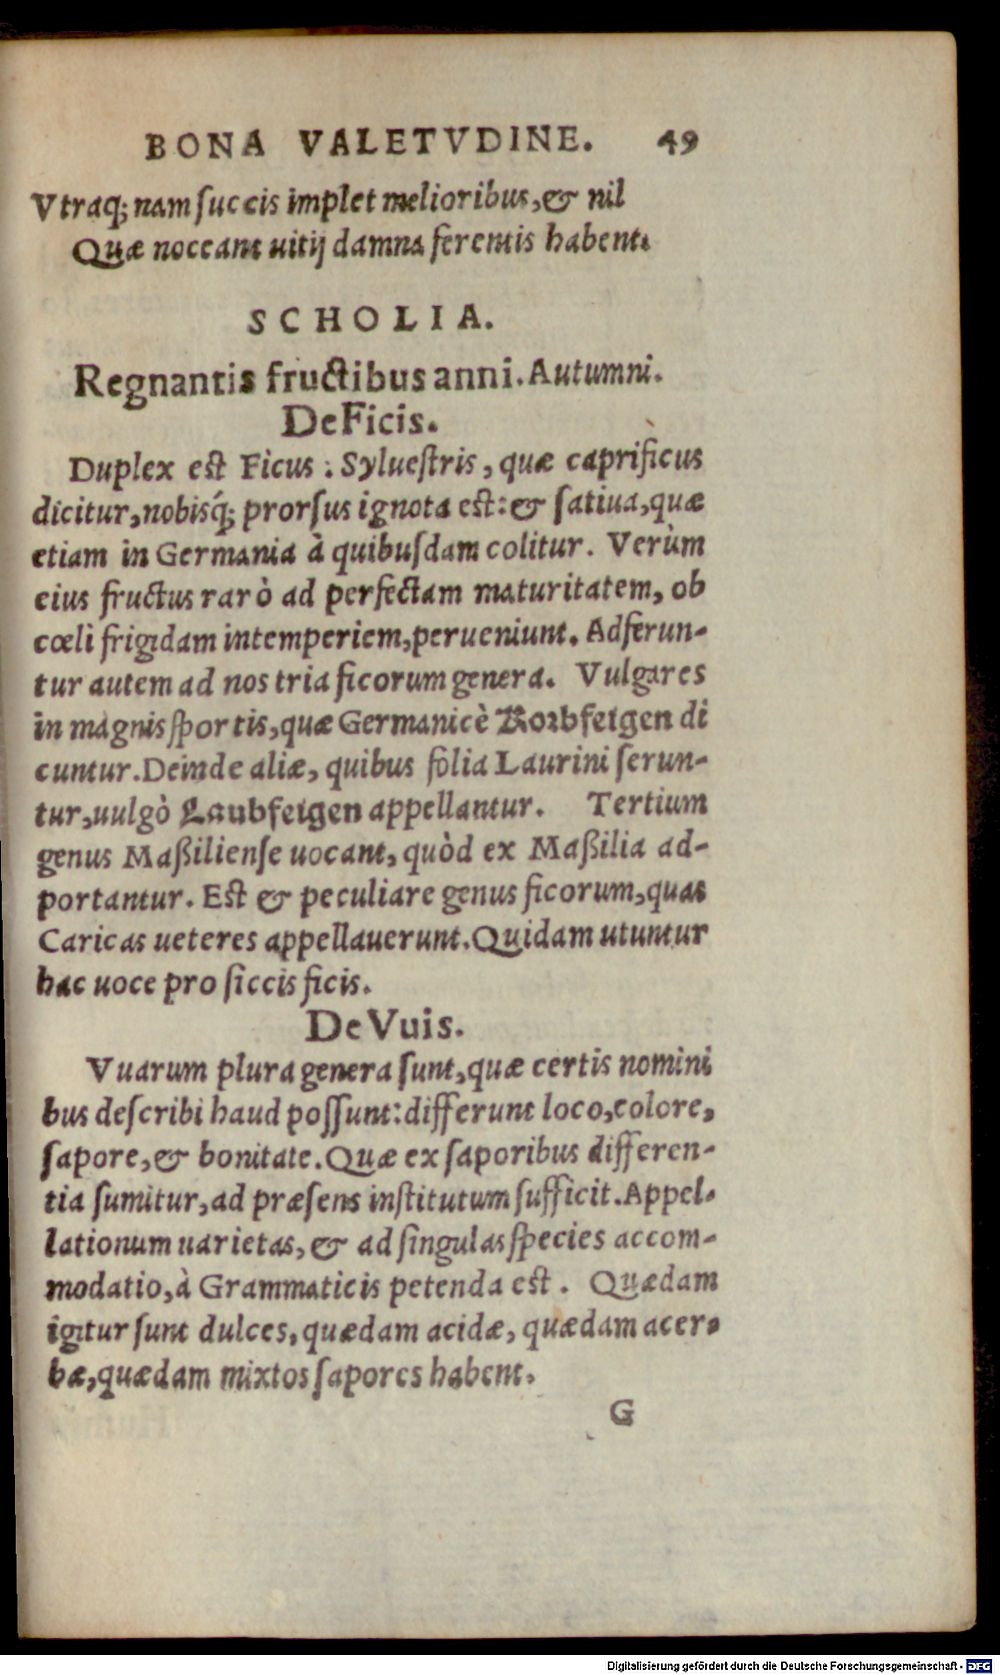 BONA VALETVDINE. 49
Vtraq; nam ſuccis implet melioribus, & nil
Quæ noceant uitij damna ferentis habent.
SCHOLIA.
Regnantis fructibus anni. Autumni.
De Ficis.
Duplex est Ficus: Sylueſtris, quæ caprificus
dicitur, nobisq́; prorſus ignota est: & ſatiua, quæ
etiam in Germania à quibuſdam colitur. Verùm
eius fructus rarò ad perfectam maturitatem, ob
cœli frigidam intemperiem, perueniunt. Adferun-
tur autem ad nos tria ficorum genera. Vulgares
in magnis ſportis, quæ Germanicè Korbfeigen di
cuntur. Deinde aliæ, quibus folia Laurini ſerun-
tur, uulgò Laubfeigen appellantur. Tertium
genus Maßilienſe uocant, quòd ex Maßilia ad-
portantur. Est & peculiare genus ficorum, quas
Caricas ueteres appellauerunt. Quidam utuntur
hac uoce pro ſiccis ficis.
De Vuis.
Vuarum plura genera ſunt, quæ certis nomini
bus deſcribi haud poſſunt: differunt loco, colore,
ſapore, & bonitate. Quæ ex ſaporibus differen-
tia ſumitur, ad præſens inſtitutum ſufficit. Appel-
lationum uarietas, & ad ſingulas ſpecies accom-
modatio, à Grammaticis petenda est. Quædam
igitur ſunt dulces, quædam acidæ, quædam acer-
bæ, quædam mixtos ſapores habent.
G
Digitalisierung gefördert durch die Deutsche Forschungsgemeinschaft - DFG